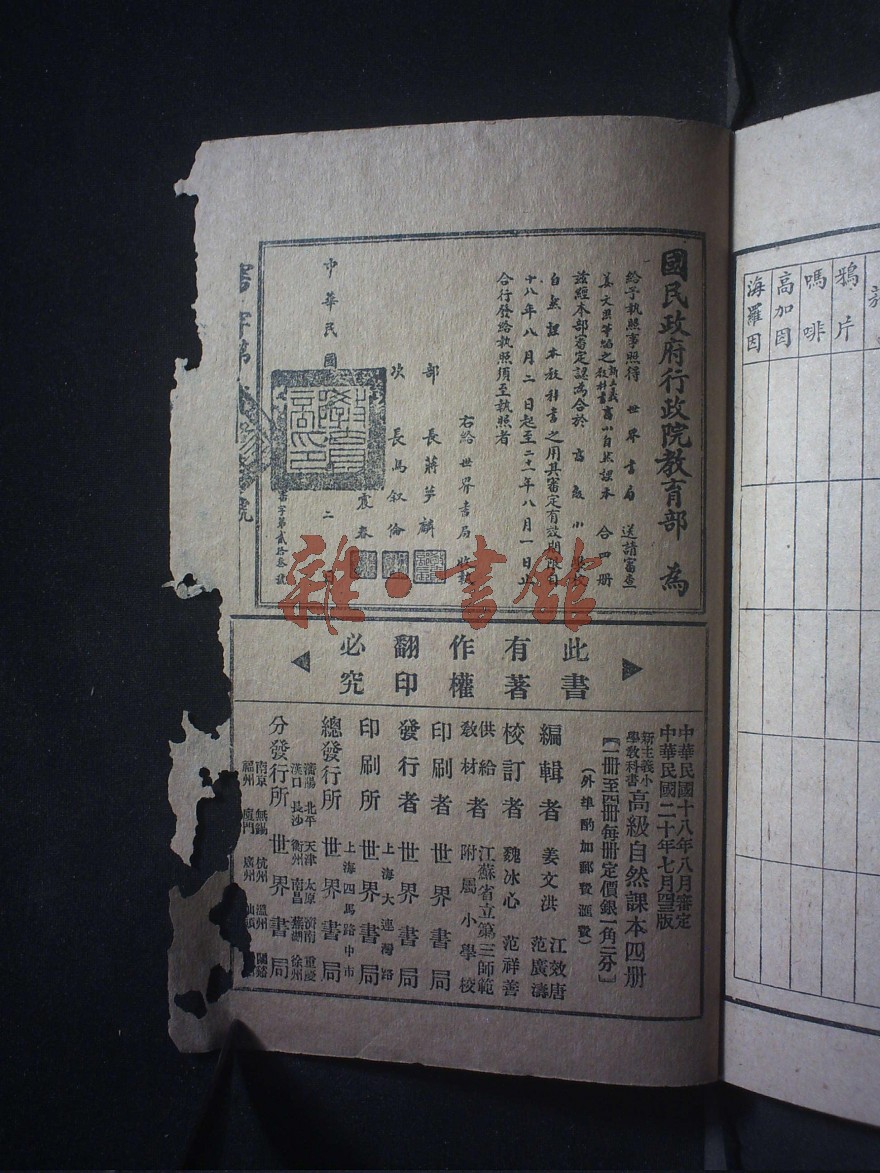 國民政府行政院教育部 為
給予執照事照得 世界書局 送請審查
姜文洪等編之新主義教科書高小自然課本 合四册
茲經本部審定認為合於 高級小學校
自然課本教科書之用其審定有效期限自
十八年八月二日起至二十一年八月一日止
合行發給執照須至執照者
右給世界書局收執
部長蔣夢麟
次長馬叙倫
中華民國
二日
此書有著作權翻印必究
中華民國十八年八月審定
中華民國二十年七月四三版
新主義小學教科書高級自然課本四册
【一册至四册每册定價銀一角二分】
（外埠酌加郵費滙費）
編輯者 姜文洪 江效唐 范廣濤
校訂者 魏冰心 范祥善
供給教材者 江蘇省立第三師範附屬小學校
印刷者 世界書局
發行者 世界書局
印刷所 上海大連灣路 世界書局
總發行所 上海四馬路中市 世界書局
分發行所 世界書局
瀋陽 北平 天津 太原 濟南 重慶
漢口 長沙 衡州 南昌 蕪湖 徐州
南京 無錫 杭州 溫州
福州 廈門 廣州 汕頭
鴉片
嗎啡
高加因
海羅因
雜·書館